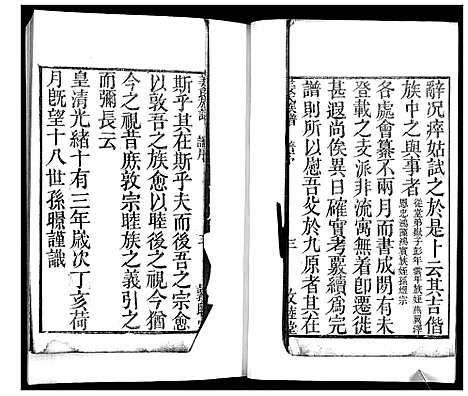 辭况瘁姑試之於是十云其吉偕
族中之與事者
各處會纂不兩月而書成閒有未
登載之支派非流寓無着卽遷徙
甚遐尚俟異日確實考覈續爲完
譜則所以慰吾父於九原者其在
三
敦睦堂
斯乎其在斯乎夫而後吾之宗愈
以敦吾之族愈以睦後之視今猶
今之視昔庶敦宗睦族之義引之
而彌長云
皇清光緒十有三年歲次丁亥荷
月旣望十八世孫
謹識